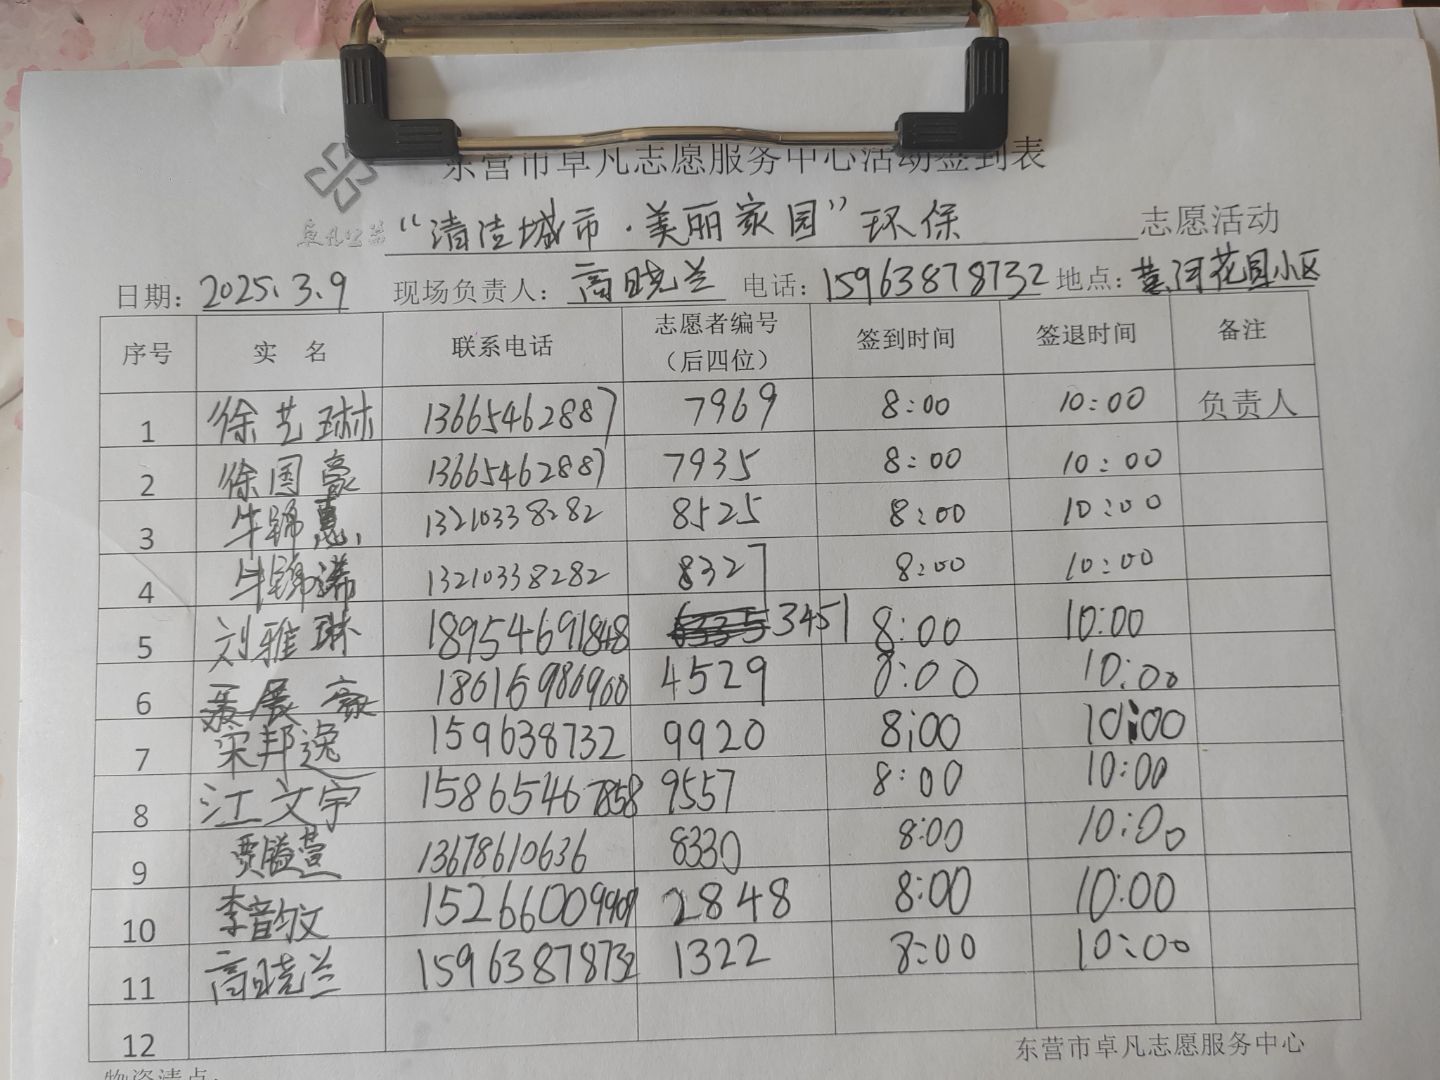 东营市卓凡志愿服务中心活动签到表
卓凡公益
“清洁城市·美丽家园”环保 志愿活动
日期：2025.3.9 现场负责人：高晓兰 电话：15963878732 地点：黄河花园小区
序号 实 名 联系电话 志愿者编号（后四位） 签到时间 签退时间 备注
1 徐艺琳 13665462887 7969 8:00 10:00 负责人
2 徐国豪 13665462887 7935 8:00 10:00
3 牛锦惠 13210338282 8525 8:00 10:00
4 牛锦浠 13210338282 8327 8:00 10:00
5 刘雅琳 18954691848 3451 8:00 10:00
6 展豪 18615986900 4529 8:00 10:00
7 宋邦逸 159638732 9920 8:00 10:00
8 江文宇 15865467858 9557 8:00 10:00
9 贾滋萱 13678610636 8330 8:00 10:00
10 李韵文 15266009909 2848 8:00 10:00
11 高晓兰 15963878732 1322 8:00 10:00
12
东营市卓凡志愿服务中心
物资清点：